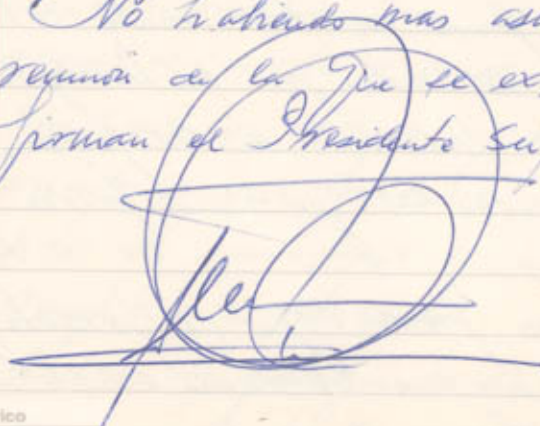 No habiendo mas as
reunión de la que se ex
firman el Presidente Se
ico